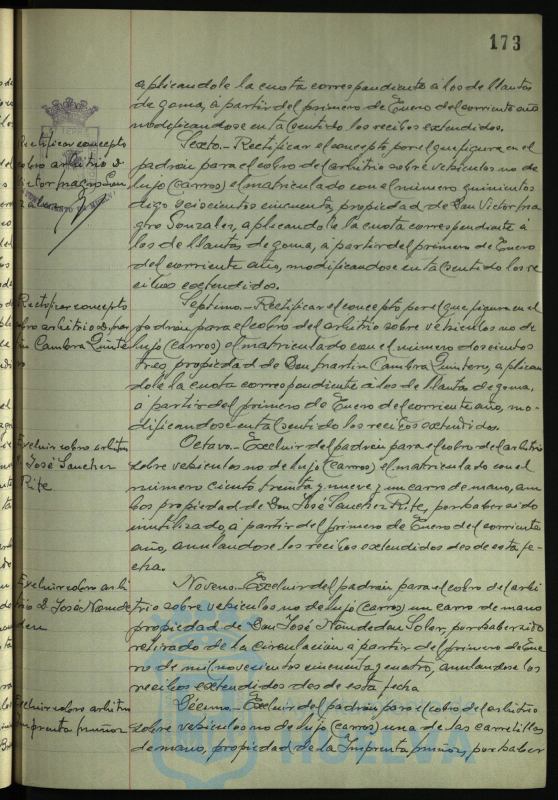 173
aplicandole la cuota correspondiente á los de llantas
de goma, á partir del primero de Enero del corriente año
modificandose en tal sentido los recibos extendidos.
Rectificar concepto
cobro arbitrio D.
Victor Magro Gon
zalez
Sexto.- Rectificar el concepto por el que figura en el
padrón para el cobro del arbitrio sobre vehiculos no de
lujo (carros) el matriculado con el número quinientos
digo seiscientos cincuenta, propiedad de Don Victor Ma
gro Gonzalez, aplicandole la cuota correspondiente á
los de llantas de goma, á partir del primero de Enero
del corriente año, modificandose en tal sentido los re
cibos extendidos.
Rectificar concepto
cobro arbitrio D. Mar
tin Cambra Quinte
ro
Septimo.- Rectificar el concepto por el que figura en el
padrón para el cobro del arbitrio sobre vehiculos no de
lujo (carros) el matriculado con el número doscientos
tres, propiedad de Don Martin Cambra Quintero, aplican
dole la cuota correspondiente á los de llantas de goma,
á partir del primero de Enero del corriente año, mo-
dificandose en tal sentido los recibos extendidos.
Excluir cobro arbitrio
José Sanchez
Rite
Octavo.- Excluir del padrón para el cobro del arbitrio
sobre vehiculos no de lujo (carros) el matriculado con el
número ciento treinta y nueve y un carro de mano, am
bos propiedad de Don José Sanchez Rite, por haber sido
inutilizado, á partir del primero de Enero del corriente
año, anulandose los recibos extendidos desde esta fe-
cha.
Excluir cobro arbi
trio D. José Namde
deu
Noveno.- Excluir del padrón para el cobro del arbi
trio sobre vehiculos no de lujo (carros) un carro de mano
propiedad de Don José Namdedeu Soler, por haber sido
retirado de la circulación a partir del primero de Ene
ro de mil novecientos cincuenta y cuatro, anulandose los
recibos extendidos desde esta fecha
Excluir cobro arbitrio
Imprenta Muñoz
Décimo.- Excluir del padrón para el cobro del arbitrio
sobre vehiculos no de lujo (carros) una de las carretillas
de mano, propiedad de la Imprenta Muñoz, por haber
HUELVA